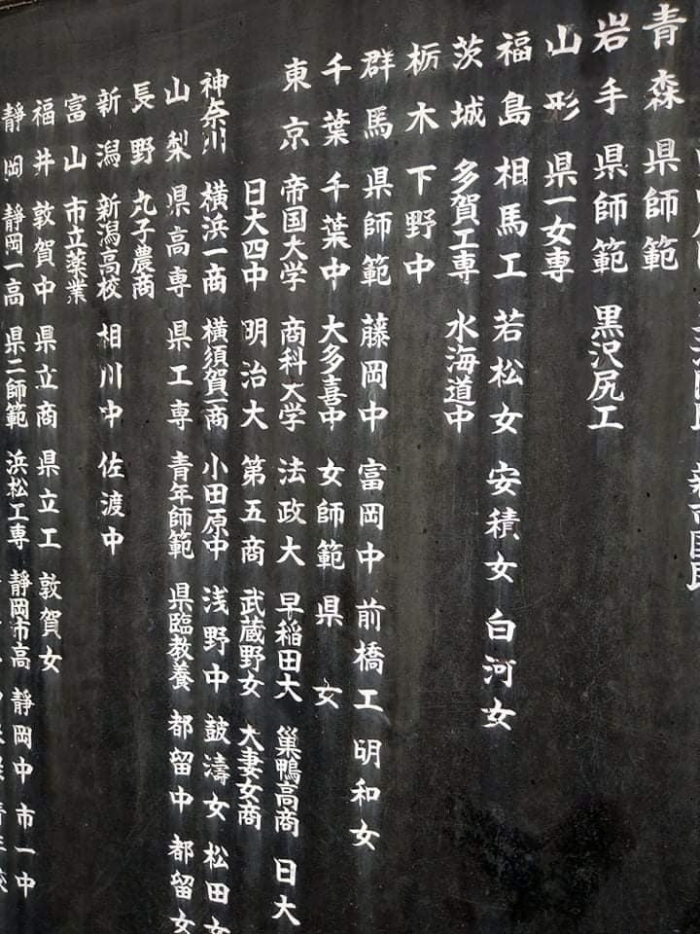 青森 県師範
岩手 県師範 黒沢尻工
山形 県一女専
福島 相馬工 若松女 安積女 白河女
茨城 多賀工専 水海道中
栃木 下野中
群馬 県師範 藤岡中 富岡中 前橋工 明和女
千葉 千葉中 大多喜中 女師範 県女
東京 帝国大学 商科大学 法政大 早稲田大 巣鴨高商 日大
日大四中 明治大 第五商 武蔵野女 大妻女商
神奈川 横浜一商 横須賀商 小田原中 浅野中 鼓濤女 松田女
山梨 県高専 県工専 青年師範 県臨教養 都留中 都留女
長野 丸子農商
新潟 新潟高校 相川中 佐渡中
富山 市立薬業
福井 敦賀中 県立商 県立工 敦賀女
静岡 静岡一高 県二師範 浜松工専 静岡市高 静岡中 市一中